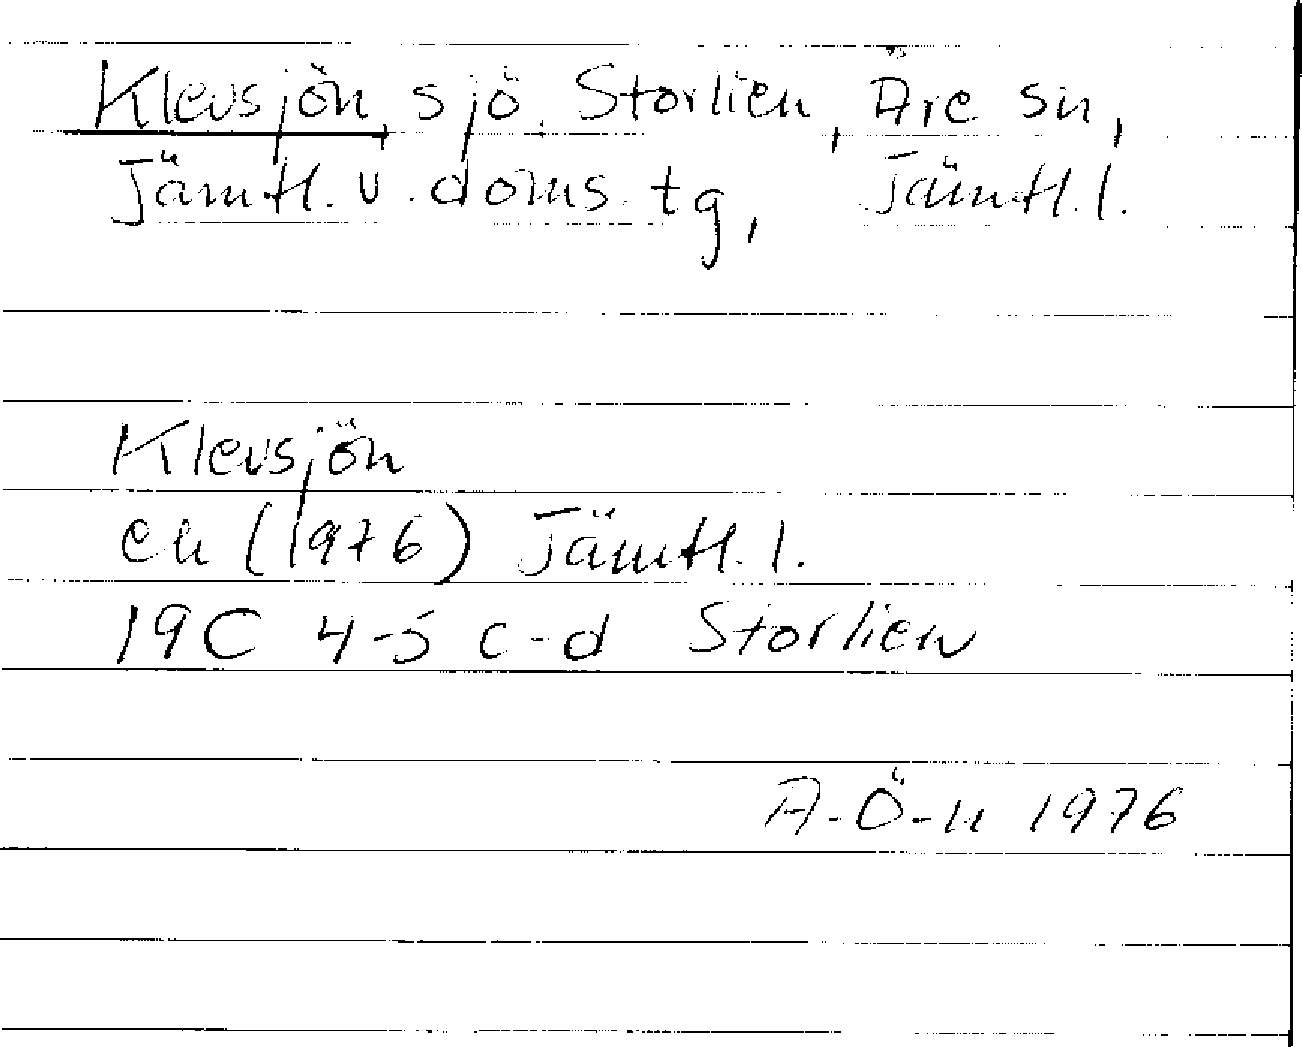 Klevsjön, sjö, Storlien, Åre sn,
Jämtl. v. doms. tg, Jämtl. l.
Klevsjön
ek (1976) Jämtl. l.
19C 4-5 c-d Storlien
A-Ö-n 1976